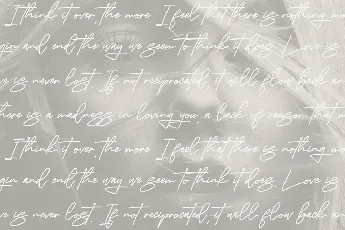 I think it over, the more I feel that there is nothing mo
gin and end, the way we seem to think it does. Love is
ve is never lost. If not reciprocated, it will flow back an
here is a madness in loving you, a lack of reason that m
I think it over, the more I feel that there is nothing mo
gin and end, the way we seem to think it does. Love is
ve is never lost. If not reciprocated, it will flow back an